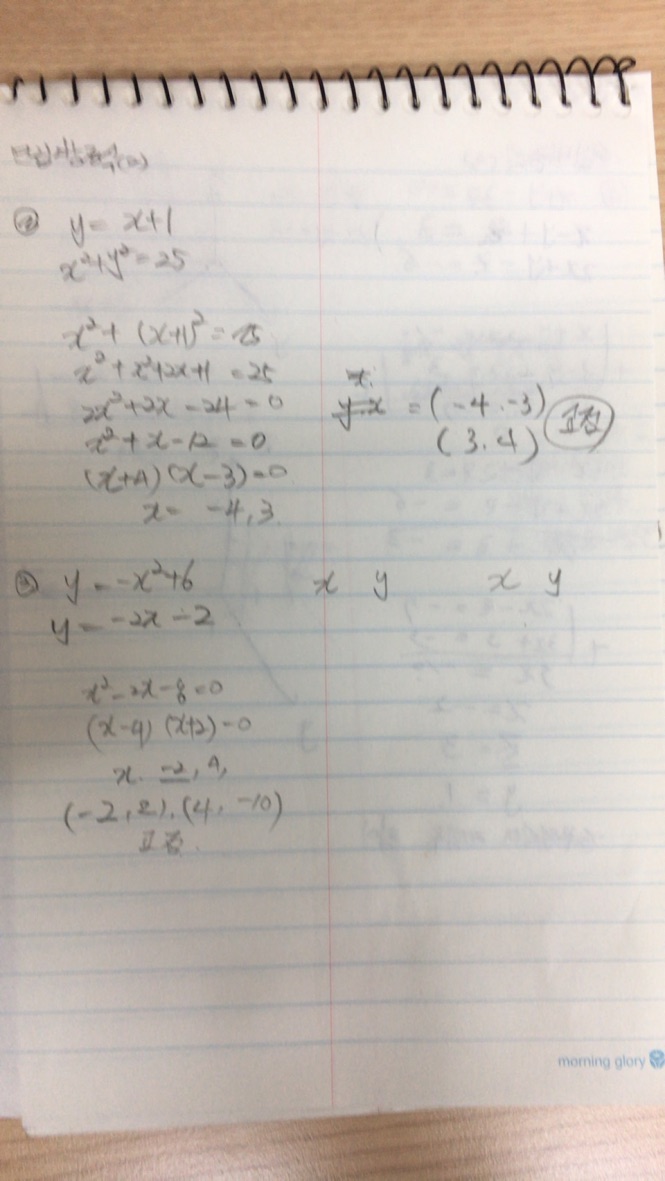 연립방정식(2)
② y = x+1
x²+y²=25
x²+ (x+1)²=25
x²+x²+2x+1 =25
2x²+2x-24=0
x²+x-12=0
(x+4)(x-3)=0
x= -4,3
x.
y-x =(-4.-3)
(3.4)
③ y=-x²+6
y=-2x-2
x y x y
x²-2x-8=0
(x-4)(x+2)=0
x. -2,4,
(-2,2),(4,-10)
morning glory